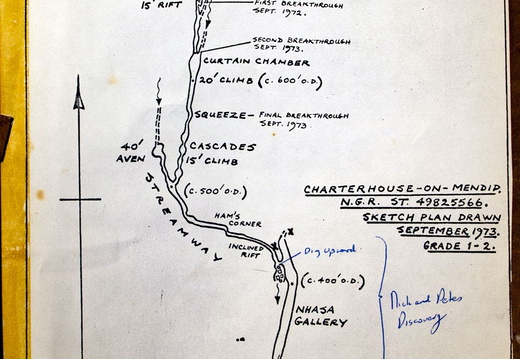 15' RIFT
FIRST BREAKTHROUGH
SEPT. 1972.
SECOND BREAKTHROUGH
SEPT. 1973.
CURTAIN CHAMBER
20' CLIMB (C. 600' O.D.)
SQUEEZE - FINAL BREAKTHROUGH
SEPT. 1973
40'
AVEN
CASCADES
15' CLIMB
(C. 500' O.D.)
STREAMWAY
HAM'S
CORNER
INCLINED
RIFT
CHARTERHOUSE-ON-MENDIP.
N.G.R. ST. 49825566.
SKETCH PLAN DRAWN
SEPTEMBER 1973.
GRADE 1-2.
Dig upward.
(C. 400' O.D.)
NHASA
GALLERY
Nick and Petes
Discovery